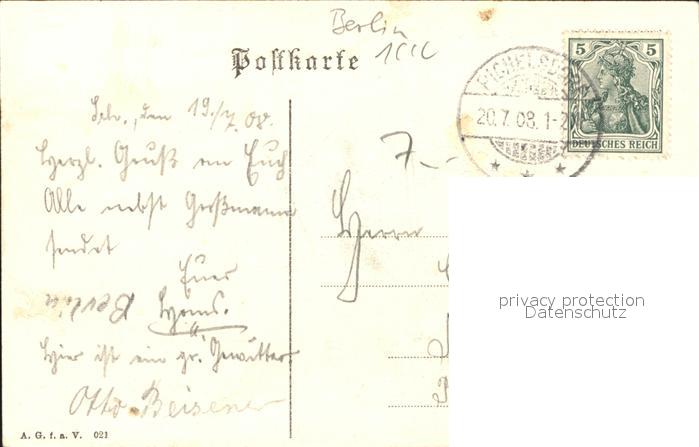 Berlin
Postkarte
5 5
20.7.08.1-2
DEUTSCHES REICH
den 19./7.08.
Herzl. Gruß an Euch
Alle nebst Großmama
sendet
Euer
Hans.
Berlin
Hier ist ein gr. Gewitter.
Otto Beisener
7.-
Herrn
privacy protection
Datenschutz
A. G. f. a. V. 021